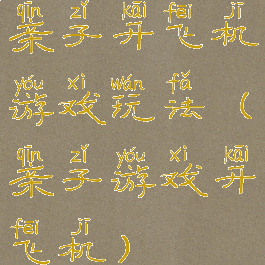 qīn zǐ kāi fēi jī
亲子开飞机
yóu xì wán fǎ
游戏玩法（
qīn zǐ yóu xì kāi
亲子游戏开
fēi jī
飞机）